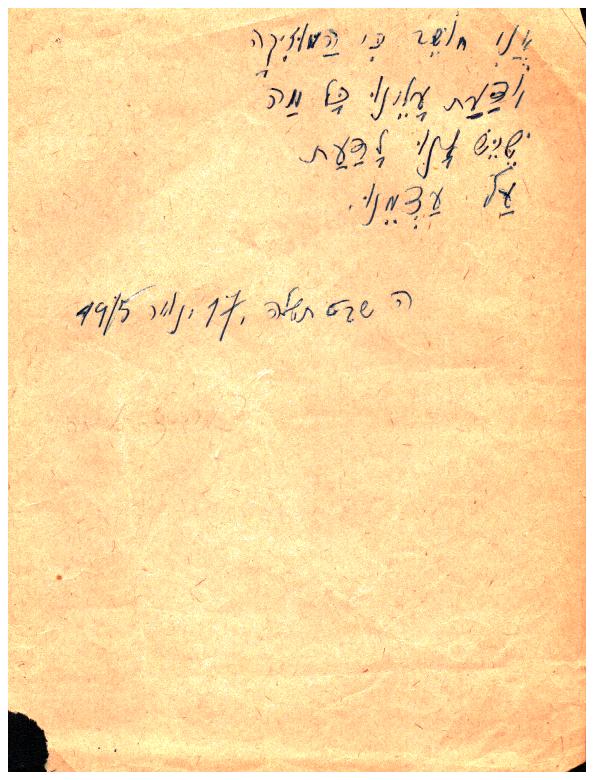 אֲנִי חוֹשֵׁב כִּי הַמּוּזִיקָה
יוֹדַעַת עָלֵינוּ כָּל מַה
שֶׁיֵּשׁ לָנוּ לָדַעַת
עַל עַצְמֵנוּ.
ה שבט תשלה, 17 ינואר 1975